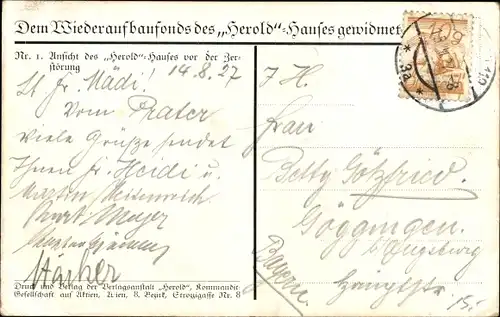 Dem Wiederaufbaufonds des „Herold“-Hauses gewidmet
Nr. 1. Ansicht des „Herold“-Hauses vor der Zer-
störung
14.8.27
Lb. Fr. Mädi!
Vom Prater
viele Grüße sendet
Ihnen Fr. Heidi u.
Martin
Kurt Meyer
Druck und Verlag der Verlagsanstalt „Herold“, Kommandit-
Gesellschaft auf Aktien, Wien, 8. Bezirk, Strozzigasse Nr. 8
I. H.
Frau
Betty Götzfried
Göggingen
b/ Augsburg
Bayern
Hauptstr.
* 3a *
110